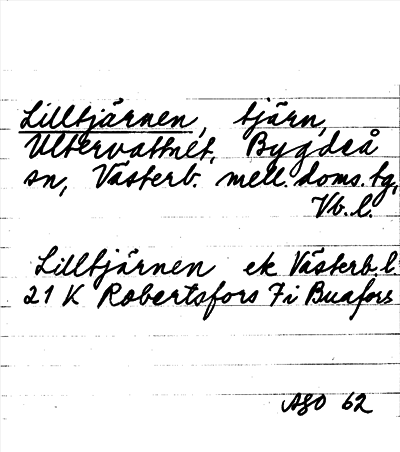 Lilltjärnen, tjärn,
Ultervattnet, Bygdeå
sn, Västerb. mell. doms. tg,
Vb. l.
Lilltjärnen ek Västerb. l
21 K Robertsfors 7i Buafors
ASO 62